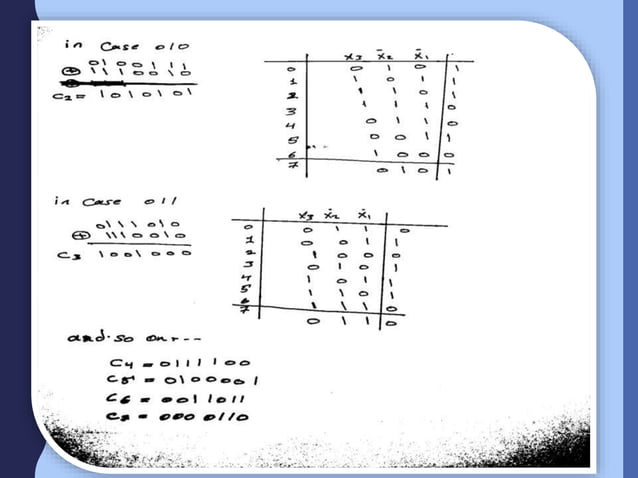 in Case 010
0100111
⊕ 1110010
C2 = 1010101
x3 x̄2 x̄1
0 0 1 0 1
1 1 0 1 1
2 1 1 0 1
3 1 1 1 0
4 0 1 1 0
5 0 0 1 1
6 1 0 0 0
7 0 1 0 1
in Case 011
0111010
⊕ 1110010
C3 1001000
x3 x̄2 x̄1
0 0 1 1 0
1 0 0 1 1
2 1 0 0 0
3 0 1 0 1
4 1 0 1 1
5 1 1 0 1
6 1 1 1 0
7 0 1 1 0
and so on ---
C4 = 0111100
C5 = 0100001
C6 = 0011011
= 0000110